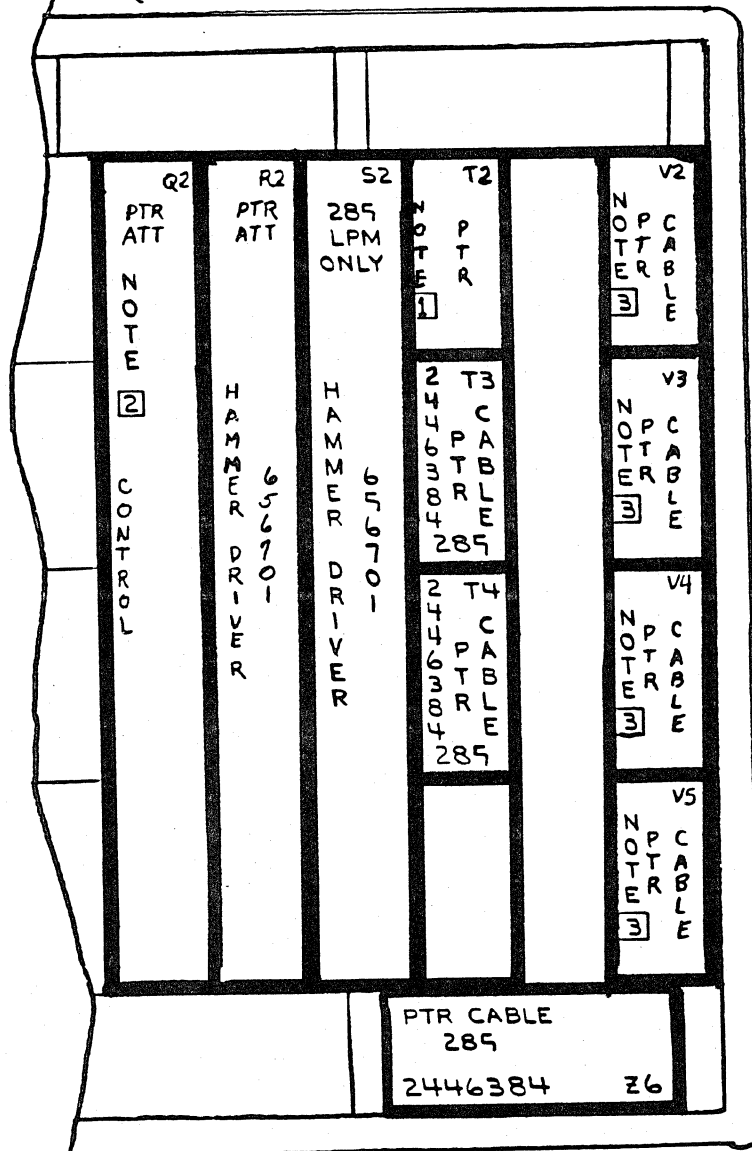 Q2
PTR
ATT
NOTE
2
CONTROL
R2
PTR
ATT
HAMMER DRIVER
656701
S2
285
LPM
ONLY
HAMMER DRIVER
656701
T2
NOTE
1
PTR
T3
2446384
PTR
CABLE
285
T4
2446384
PTR
CABLE
285
V2
NOTE
3
PTR
CABLE
V3
NOTE
3
PTR
CABLE
V4
NOTE
3
PTR
CABLE
V5
NOTE
3
PTR
CABLE
PTR CABLE
285
2446384 Z6